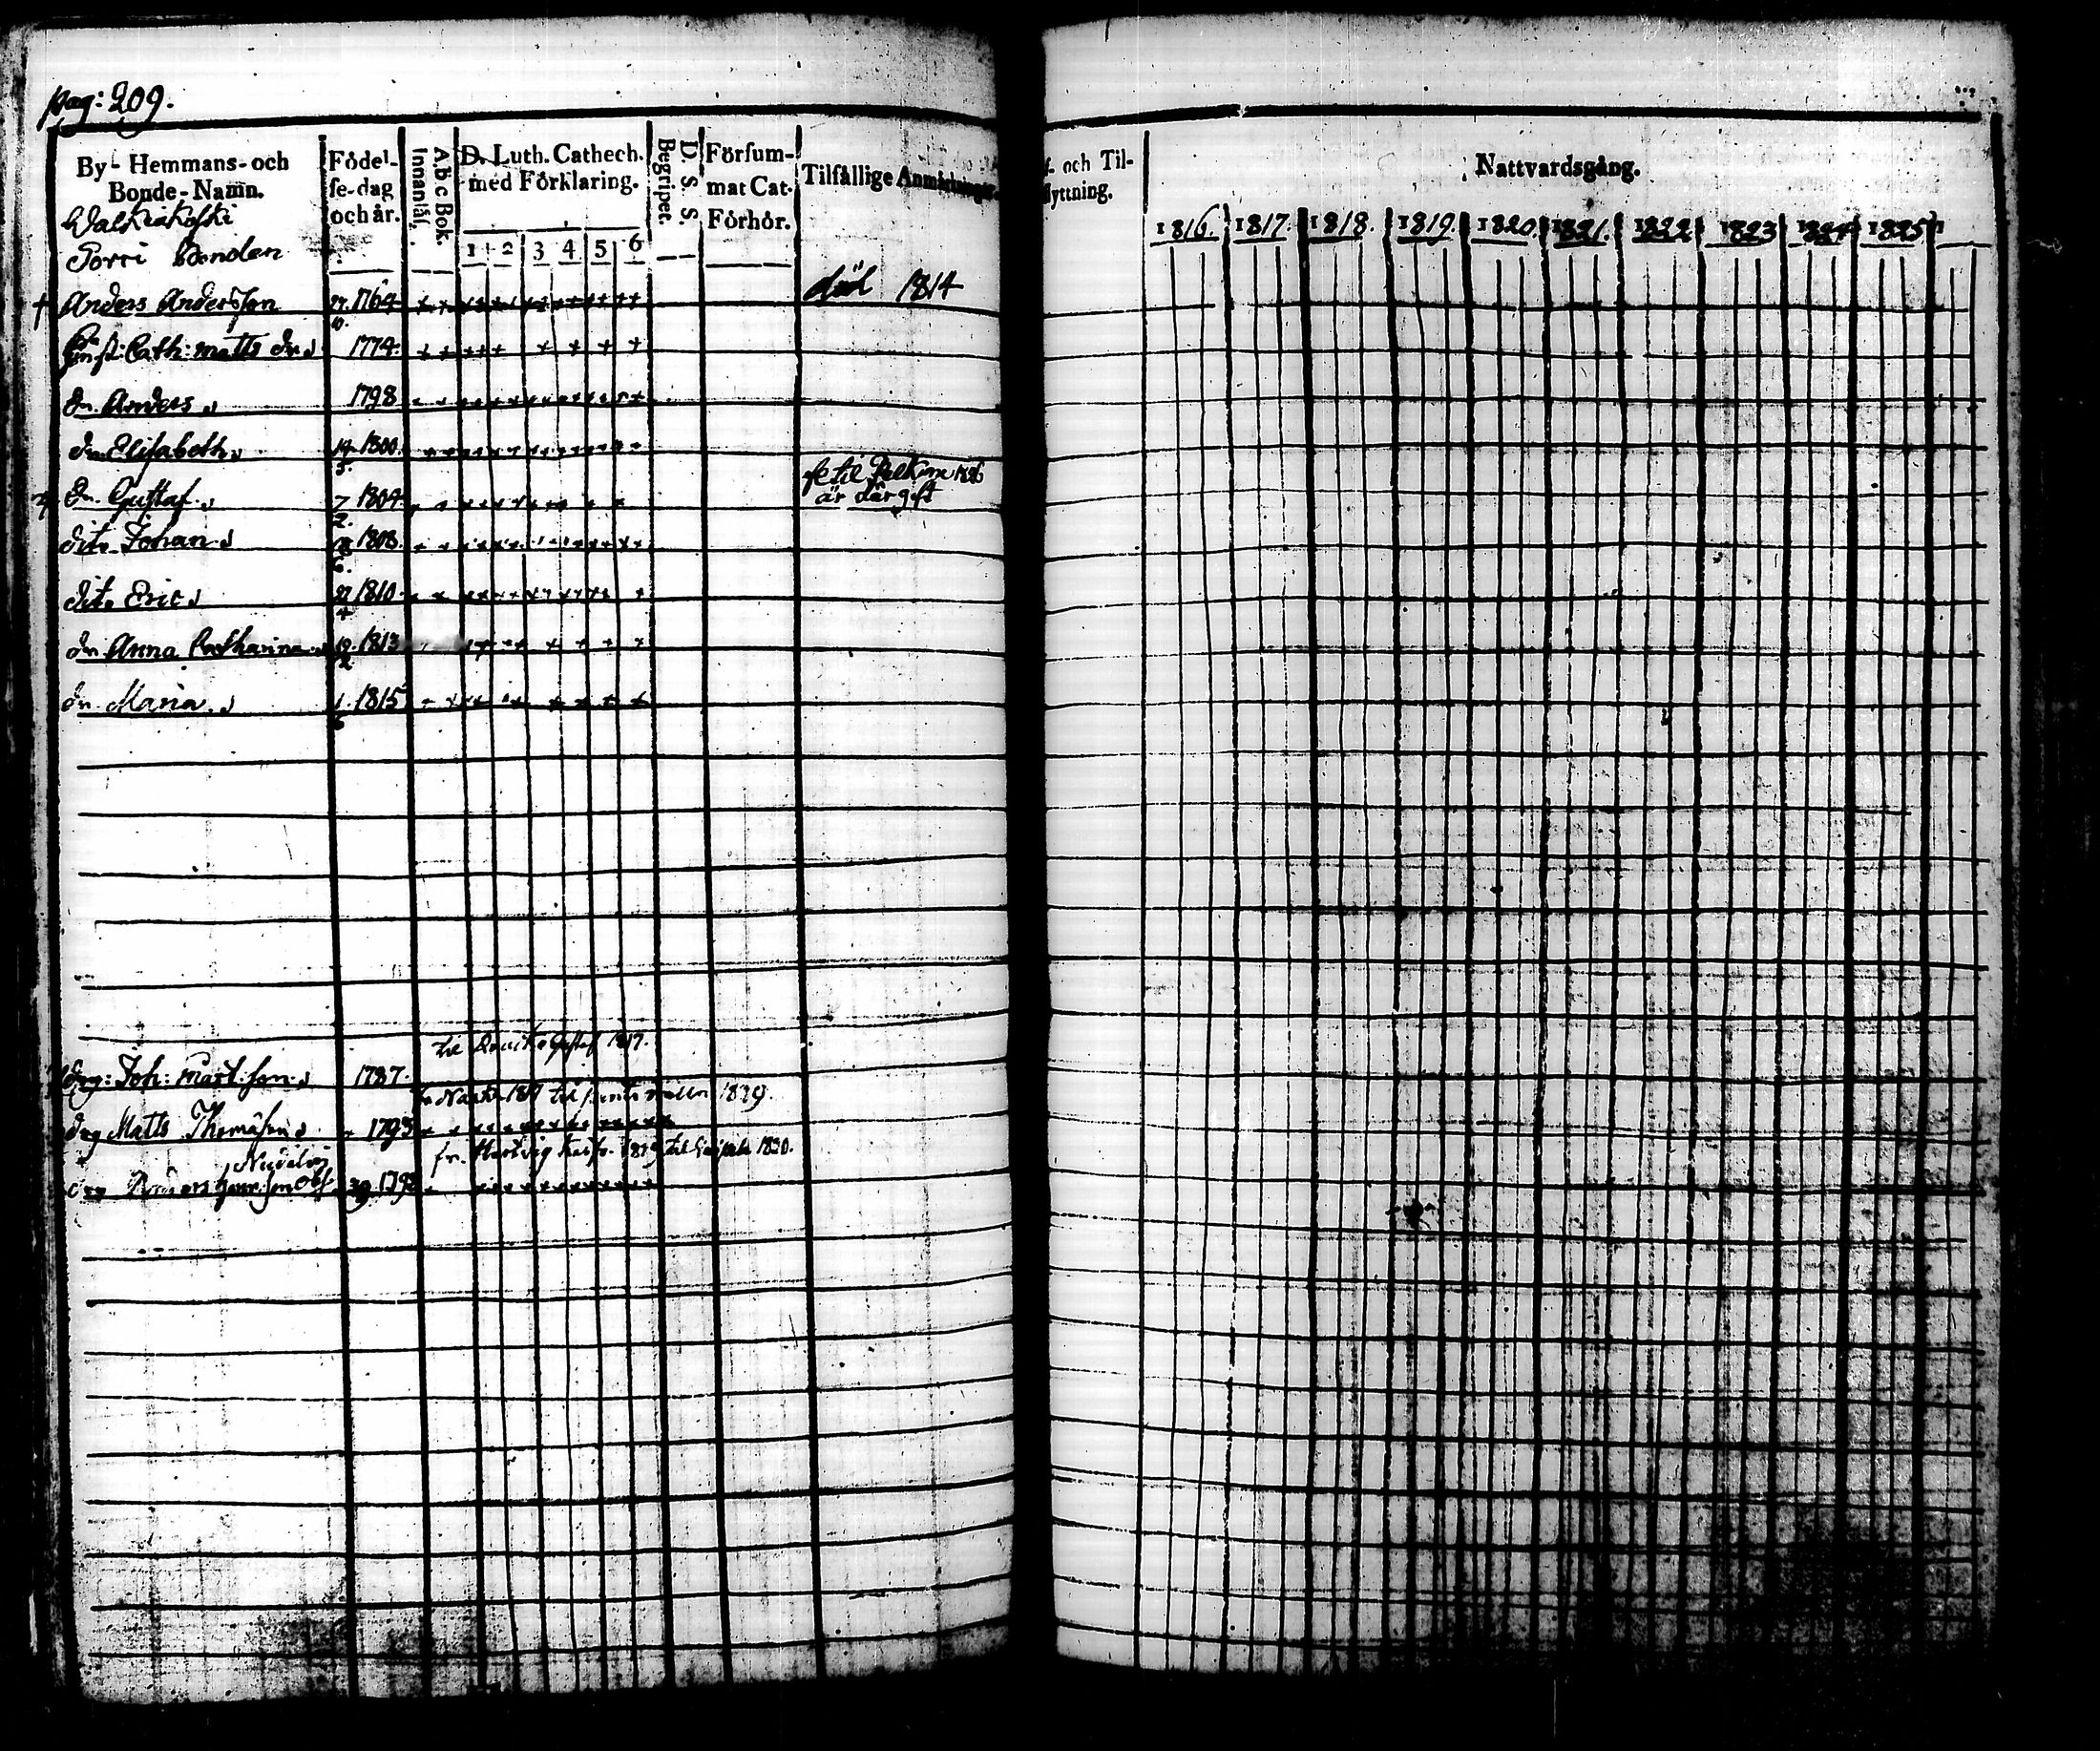 pag: 209.
By- Hemmans- och Bonde-Namn.
Födelse-dag och år.
A.b.c Bok. Innanläs.
D. Luth. Cathech. med Förklaring.
1 2 3 4 5 6
Begripet. D. S. S.
Försummat Cat. Förhör.
Tilfällige Anmärkningar
och Tilflyttning.
Nattvardsgång.
1816. 1817. 1818. 1819. 1820. 1821. 1822 1823 1824 1825
Walkiakoski
Torri Bonden
† Anders Andersson 27. 10. 1764 död 1814
Cath: Matts dr 1774
dr. Anders 1798
dr Elisabeth 14 5. 1800
dr. Gustaf 7 2. 1804 är där gift
dito Johan 6. 1808
dito Eric 4 1810
dr Anna Catharina 1813
dr Maria 1 1815
til Gustaf 1817.
drg: Joh: Matt:son 1787
1817 til 1829.
drg Matts Thomasson 1793
fr. 1829 til 1830.
drg Anders 1792